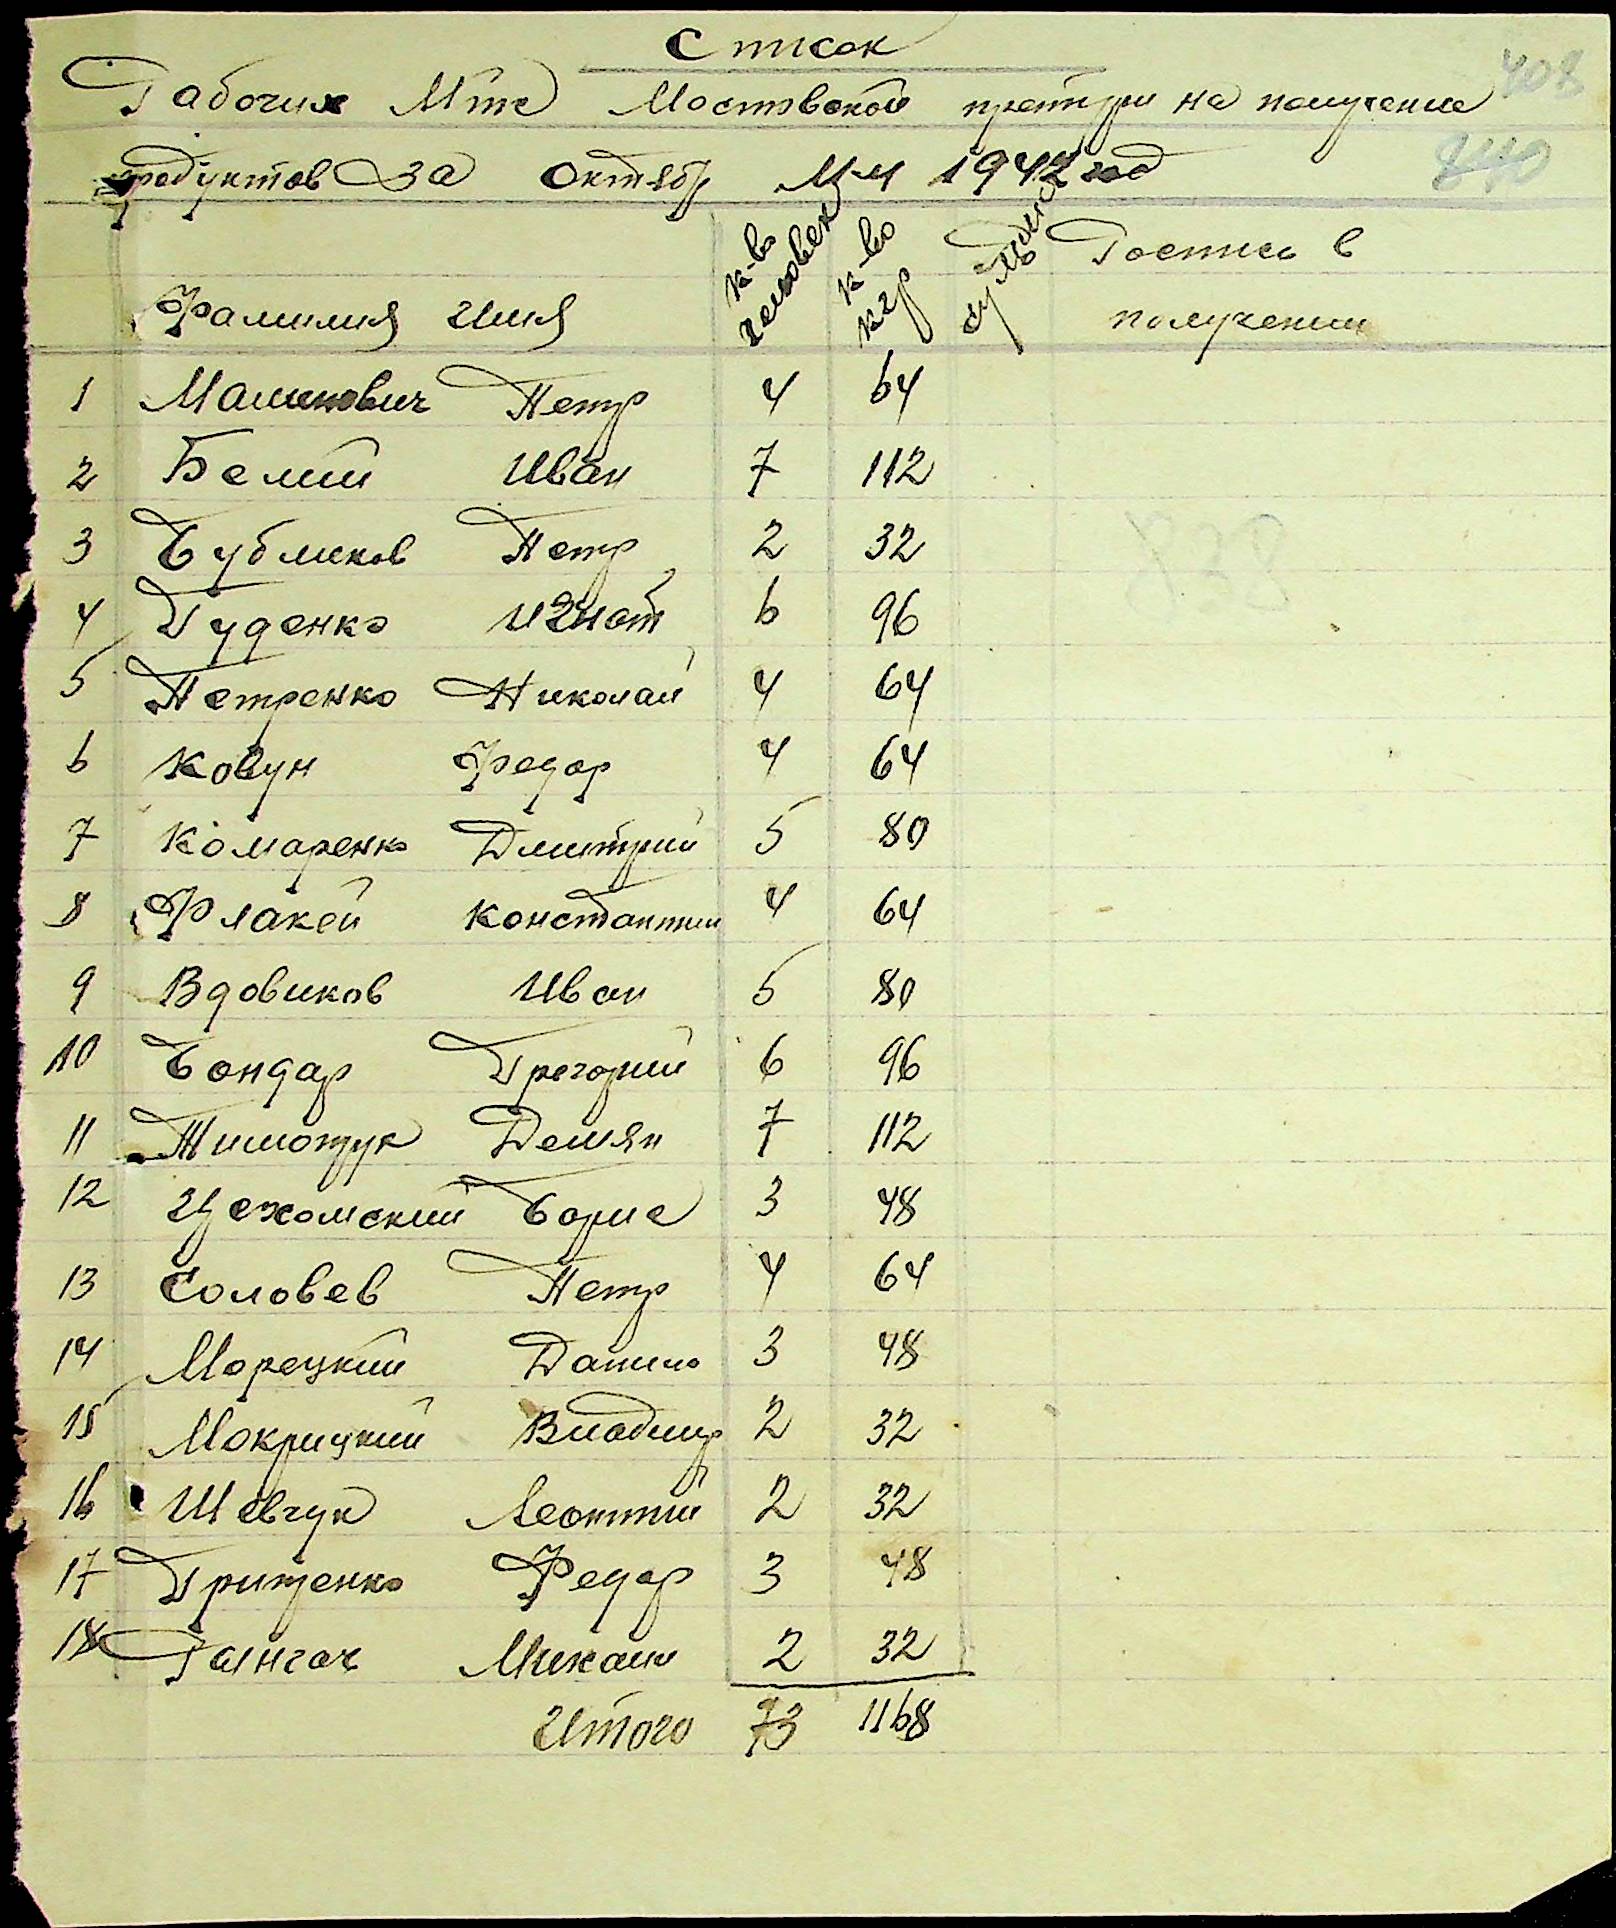 Список
Рабочих Мтс Мостовской претури на получение
продуктов за октябр М-ц 1942 год
Фамилия Имя к-во человек к-во кгр сумма Роспись в получении
1 Малинович Петр 4 64
2 Белий Иван 7 112
3 Бубликов Петр 2 32
4 Гуденко Игнат 6 96
5 Петренко Николай 4 64
6 Ковун Федор 4 64
7 Комаренко Дмитрий 5 80
8 Флакей Константин 4 64
9 Вдовиков Иван 5 80
10 Бондар Грегорий 6 96
11 Тимощук Демян 7 112
12 Цехомский Борис 3 48
13 Соловев Петр 4 64
14 Морецкий Данило 3 48
15 Мокрицкий Владимир 2 32
16 Шевчук Леонтий 2 32
17 Грищенко Федор 3 48
18 Михаил 2 32
Итого 73 1168